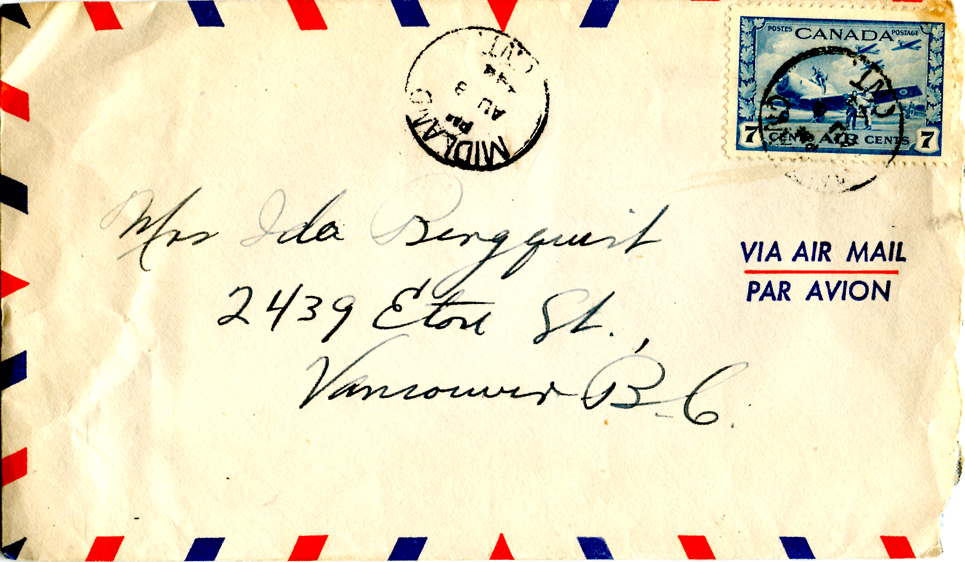 POSTES CANADA POSTAGE
7 CENTS AIR CENTS 7
MIDLAND
PM
AU 3
44
ONT.
VIA AIR MAIL
PAR AVION
Mrs Ida Bergquist
2439 Eton St.,
Vancouver B.C.